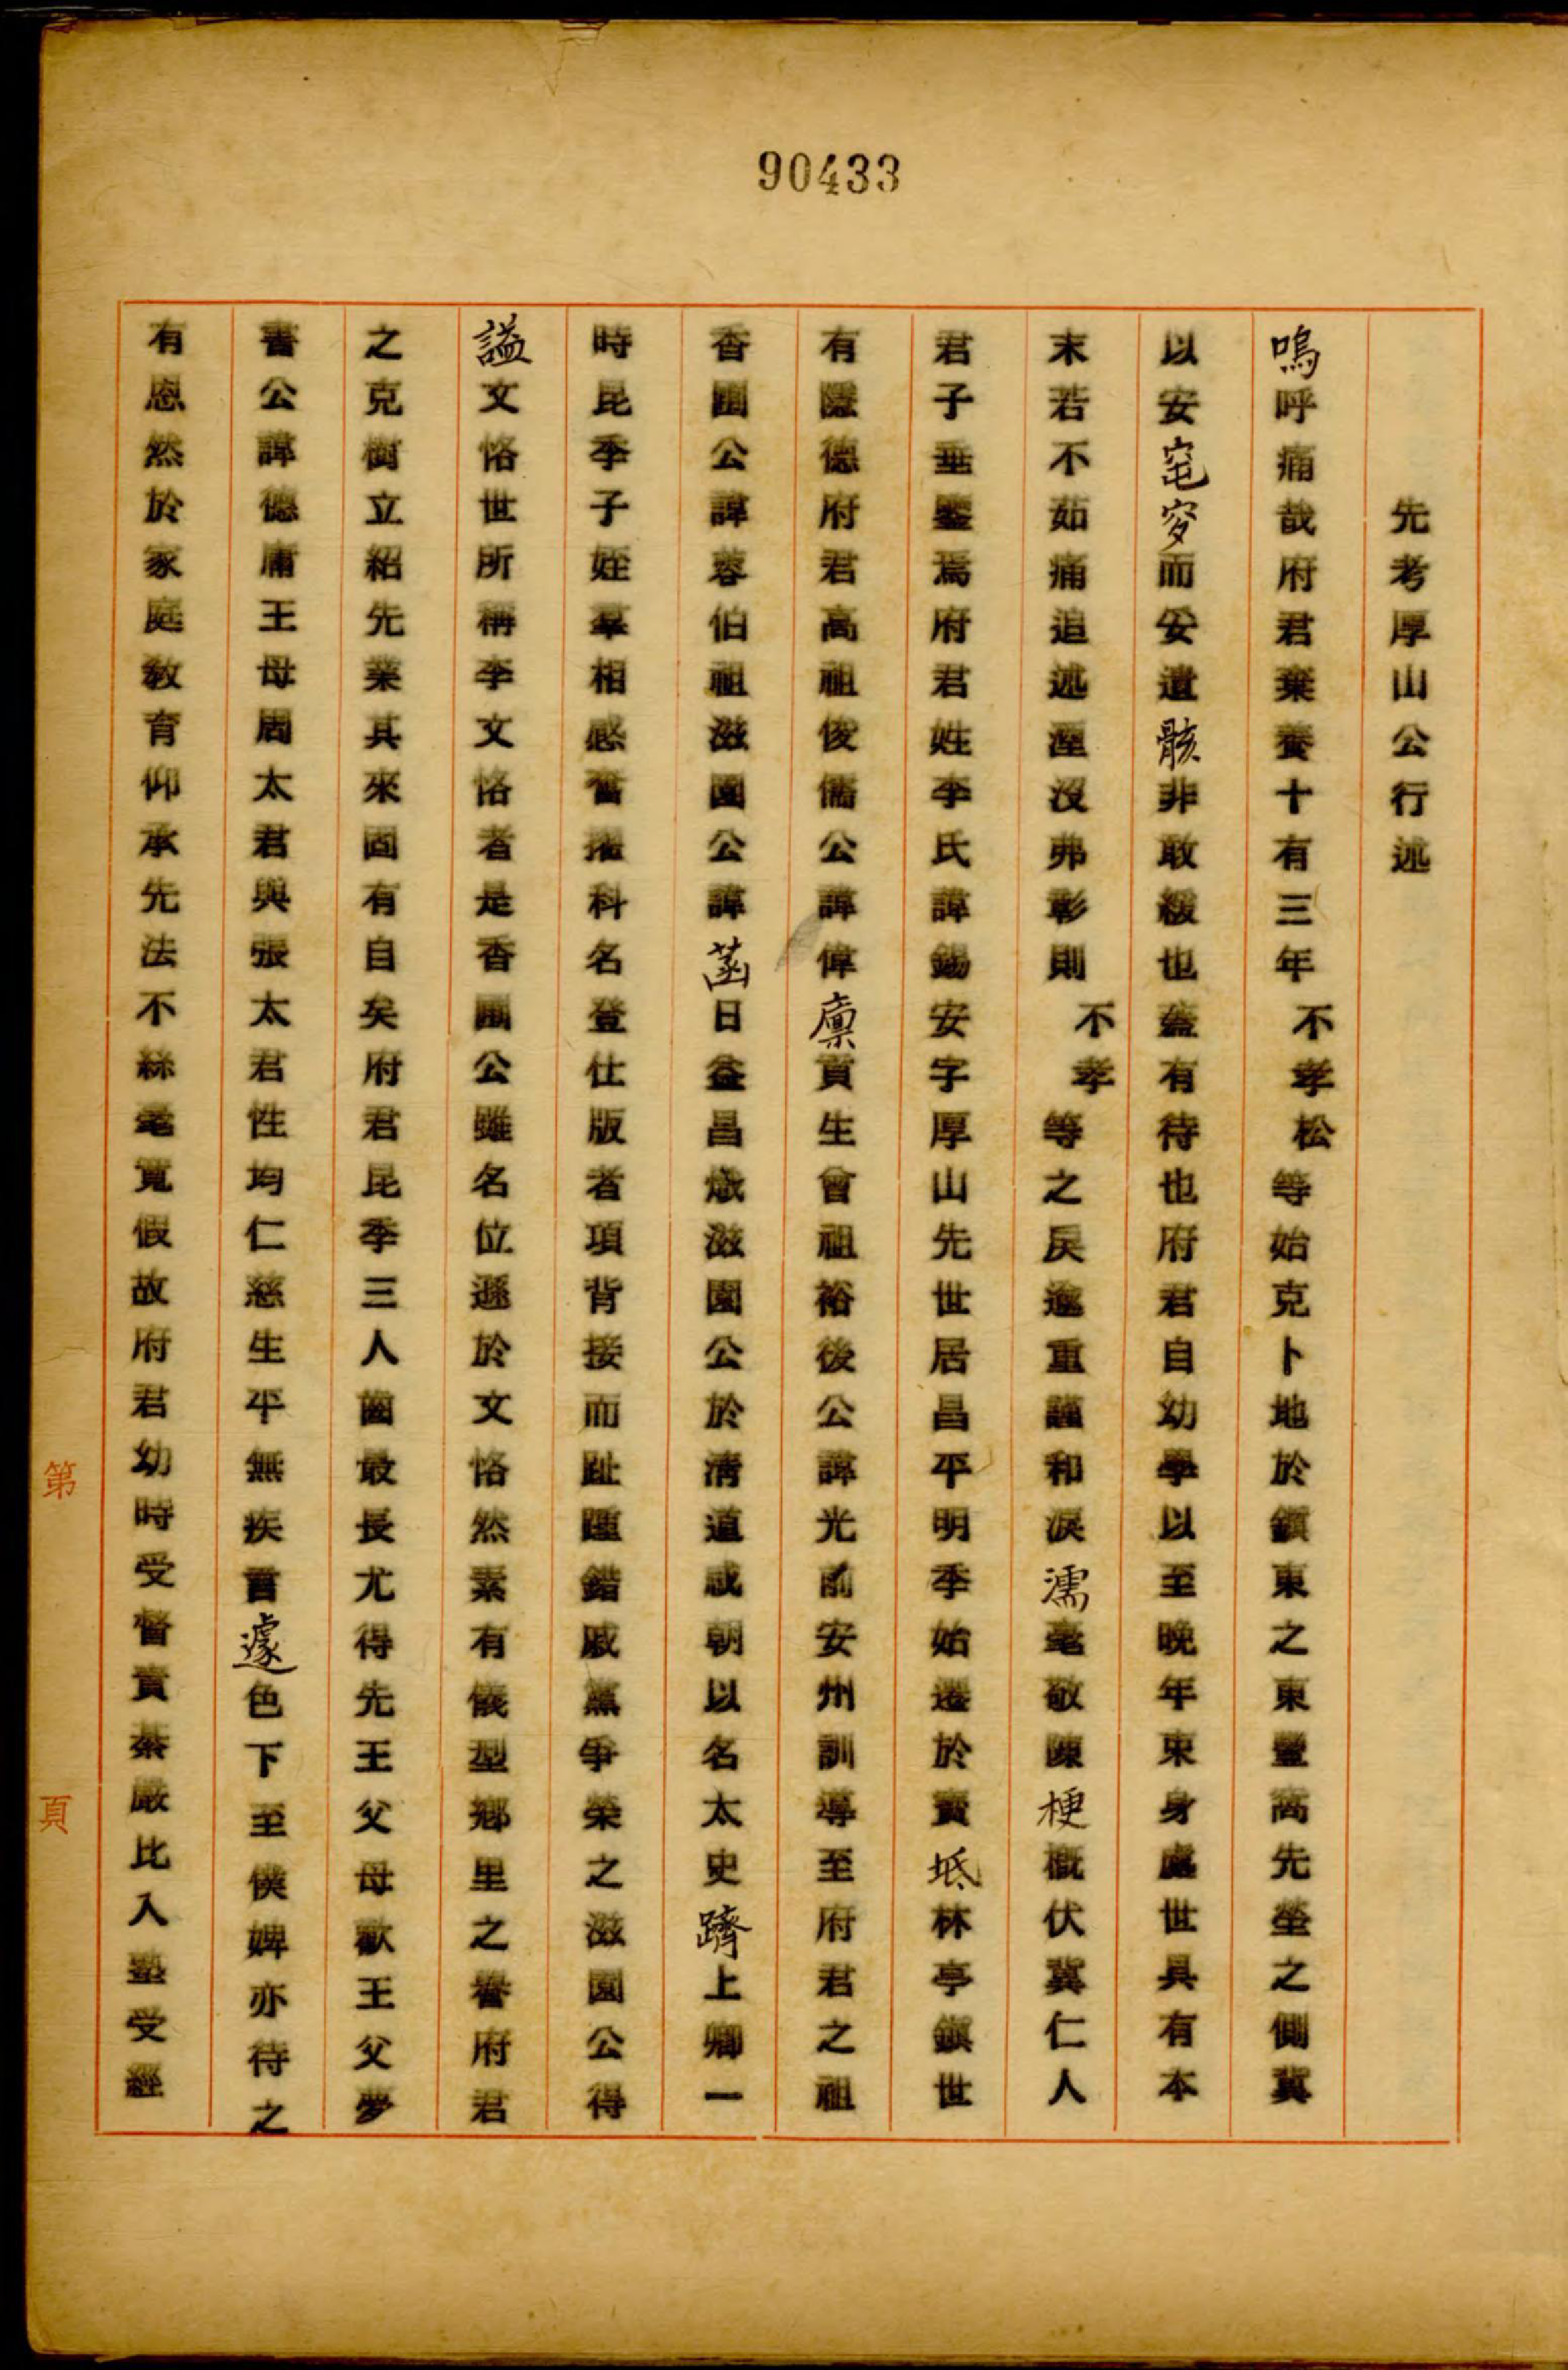 90433
先考厚山公行述
嗚呼痛哉府君棄養十有三年不孝松等始克卜地於鎮東之東豐窩先塋之側冀
以安窀穸而安遺骸非敢緩也蓋有待也府君自幼學以至晚年束身處世具有本
末若不茹痛追述湮沒弗彰則不孝等之戾邅重謹和淚濡毫敬陳梗概伏冀仁人
君子垂鑒焉府君姓李氏諱錫安字厚山先世居昌平明季始遷於寶坻林亭鎮世
有隱德府君高祖俊儒公諱偉廩貢生曾祖裕後公諱光前安州訓導至府君之祖
香圃公諱蓉伯祖滋園公諱菡日益昌熾滋園公於清道咸朝以名太史躋上卿一
時昆季子姪羣相感奮擢科名登仕版者項背接而趾踵錯戚黨爭榮之滋園公得
諡文恪世所稱李文恪者是香圃公雖名位遜於文恪然素有儀型鄉里之譽府君
之克樹立紹先業其來固有自矣府君昆季三人齒最長尤得先王父母歡王父夢
書公諱德庸王母周太君與張太君性均仁慈生平無疾言遽色下至僕婢亦待之
有恩然於家庭教育仰承先法不絲毫寬假故府君幼時受督責綦嚴比入塾受經
第
頁